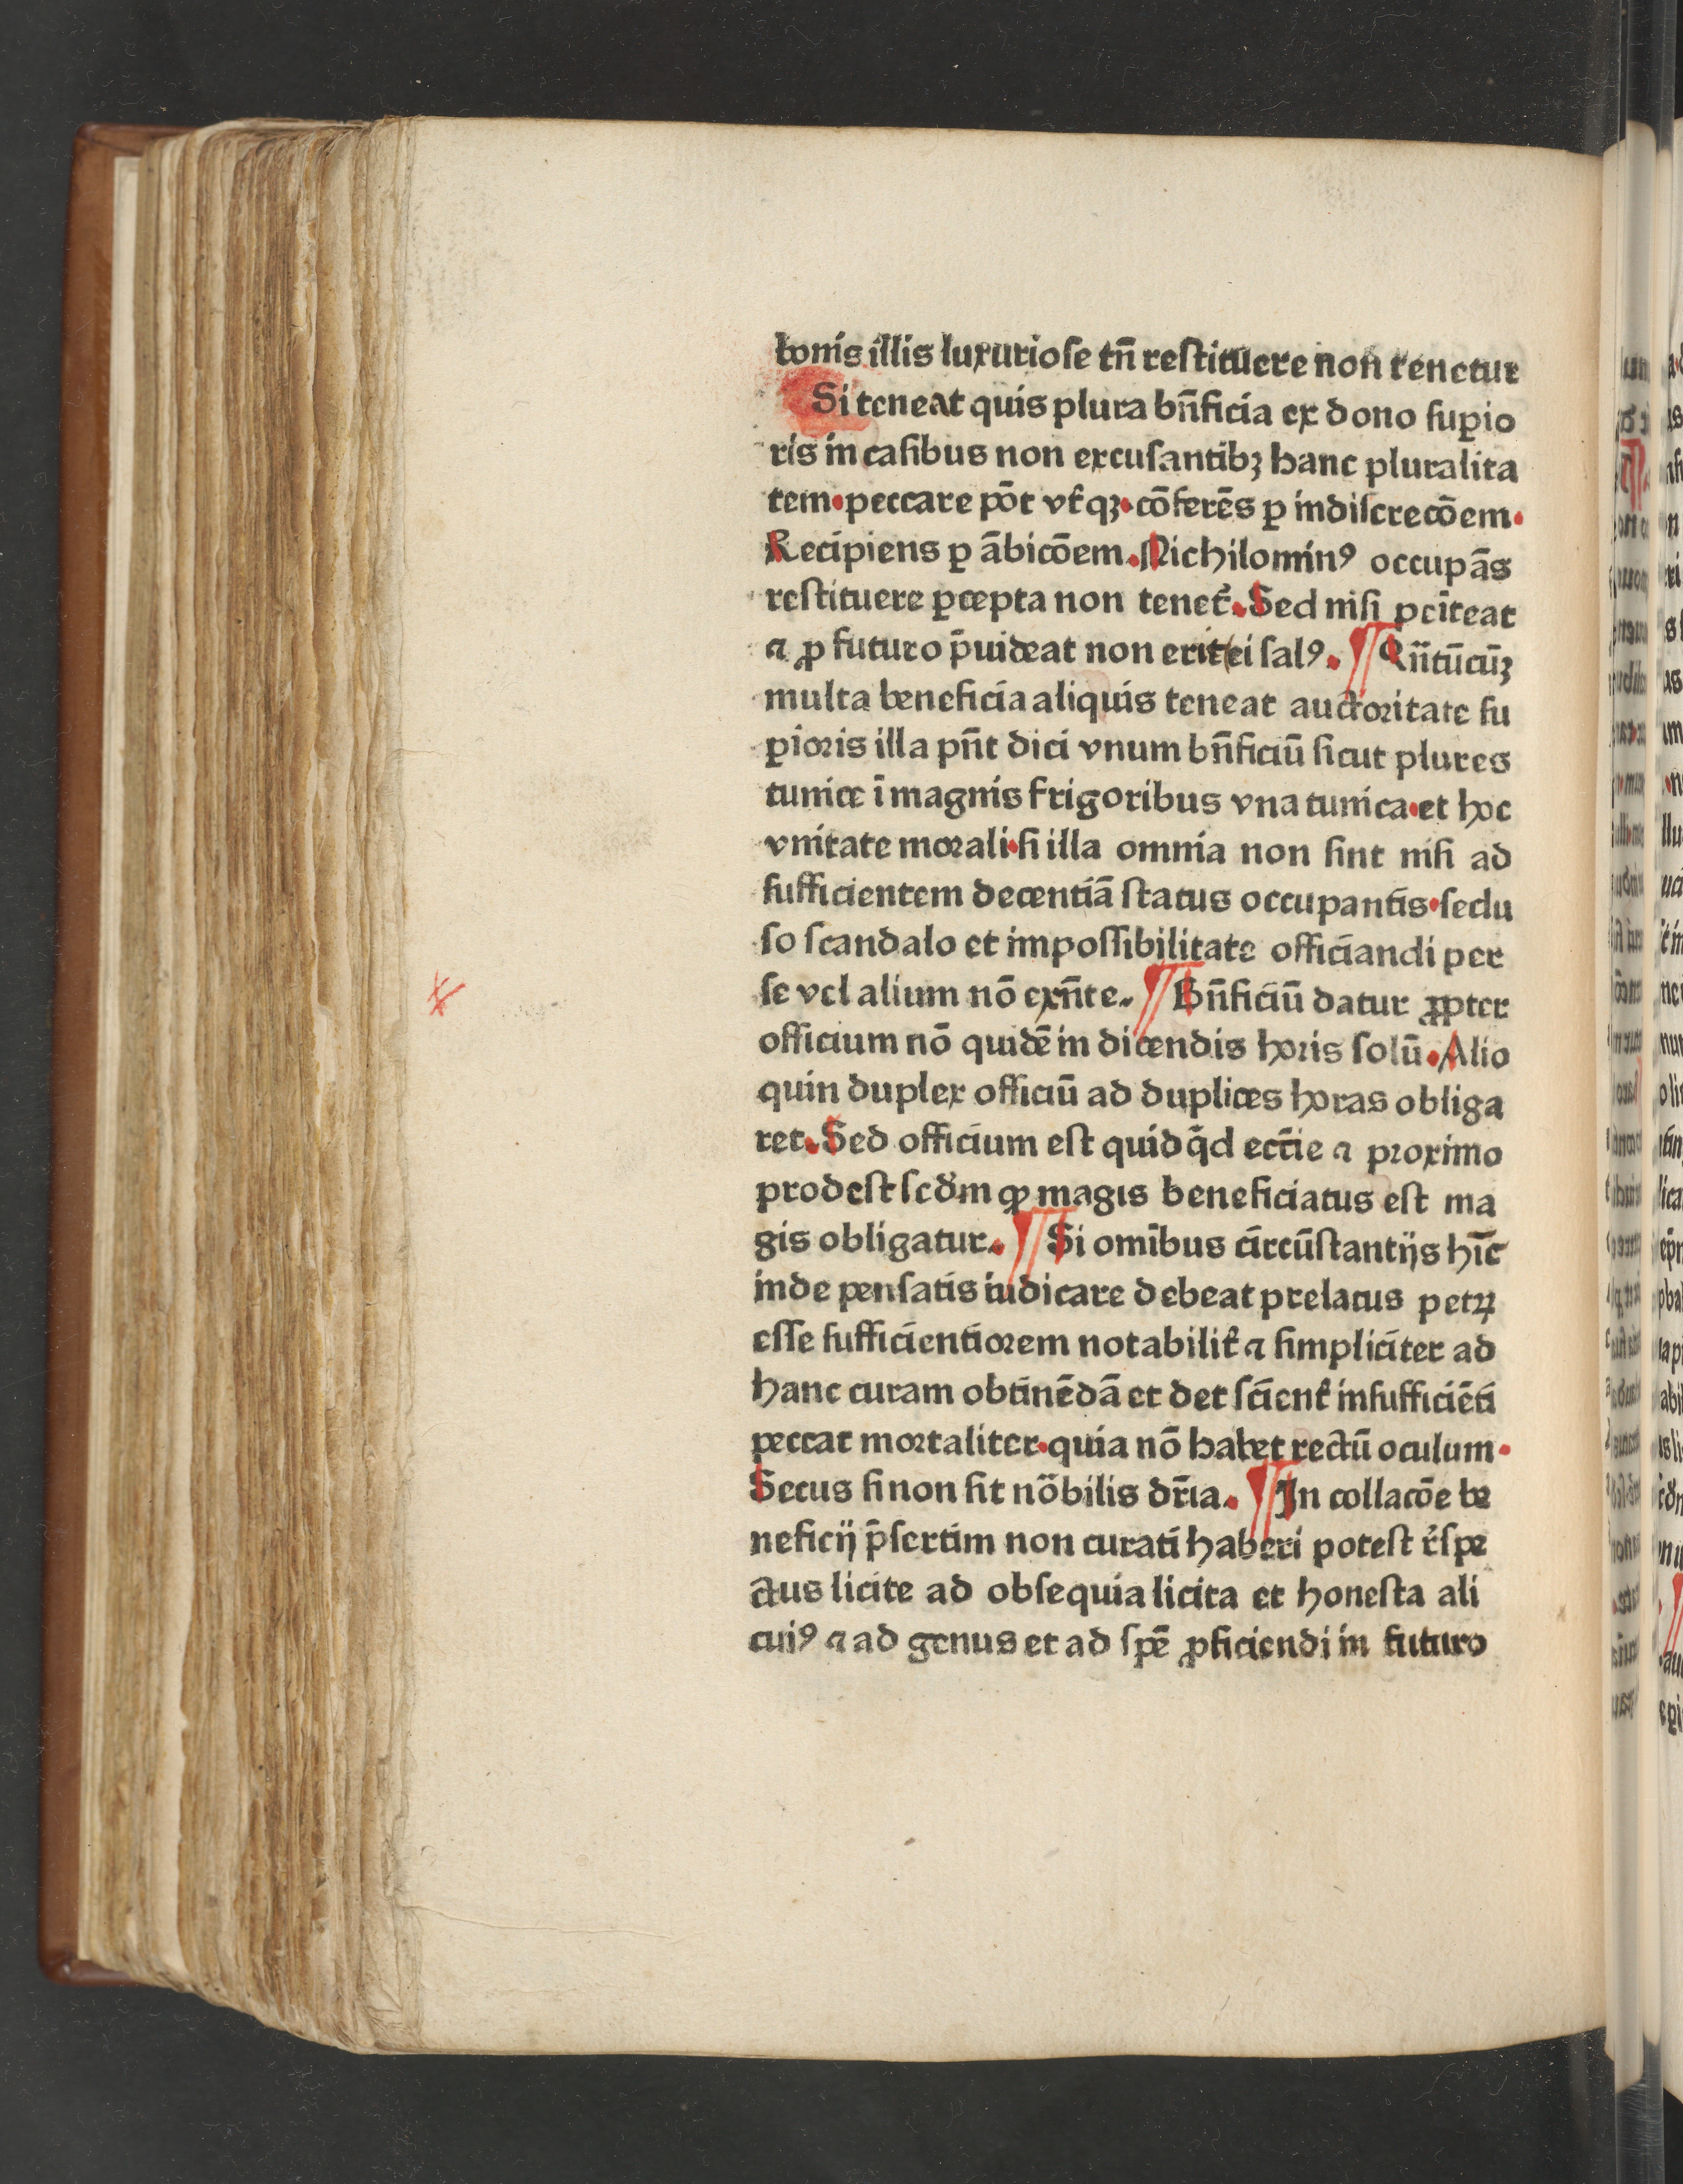 bonis illis luxuriose tn̄ restituere non tenetur
Si teneat quis plura bn̄ficia ex dono sup̱io
ris in casibus non excusantibꝫ hanc pluralita
tem·peccare pōt vt̉qꝫ·cōferēs ꝑ indiscrecōem·
Recipiens ꝑ ābicōem. Nichilominꝰ occupās
restituere ꝑcepta non tenet̉. Sed nisi peīteat
⁊ ꝓ futuro p̄uideat non erit ei salꝰ. ¶ Qn̄tūcūꝫ
multa beneficia aliquis teneat auctoritate su
ꝑioris illa pn̄t dici vnum bn̄ficiū sicut plures
tunice ī magnis frigoribus vna tunica·et hoc
vnitate morali·si illa omnia non sint nisi ad
sufficientem decentiā status occupantis·seclu
so scandalo et impossibilitate officiandi per
se vel alium nō exn̄te. ¶ Bn̄ficiū datur ꝓpter
officium nō quidē in dicendis horis solū. Alio
quin duplex officiū ad duplices horas obliga
ret. Sed officium est quidq̄d ecc̄ie ⁊ proximo
prodest scd̓m ꝙ magis beneficiatus est ma
gis obligatur. ¶ Si omībus circūstantijs hīc
inde pensatis iudicare debeat prelatus petꝝ
esse sufficientiorem notabilit̉ ⁊ simpliciter ad
hanc curam obtinēdā et det scient̉ insufficiēti
peccat mortaliter·quia nō habet rectū oculum·
Secus si non sit nōbilis dr̄ia. ¶ In collacōe be
neficij p̄sertim non curati haberi potest r̉spe
ctus licite ad obsequia licita et honesta ali
cuiꝰ ⁊ ad genus et ad spē ꝓficiendi in futuro